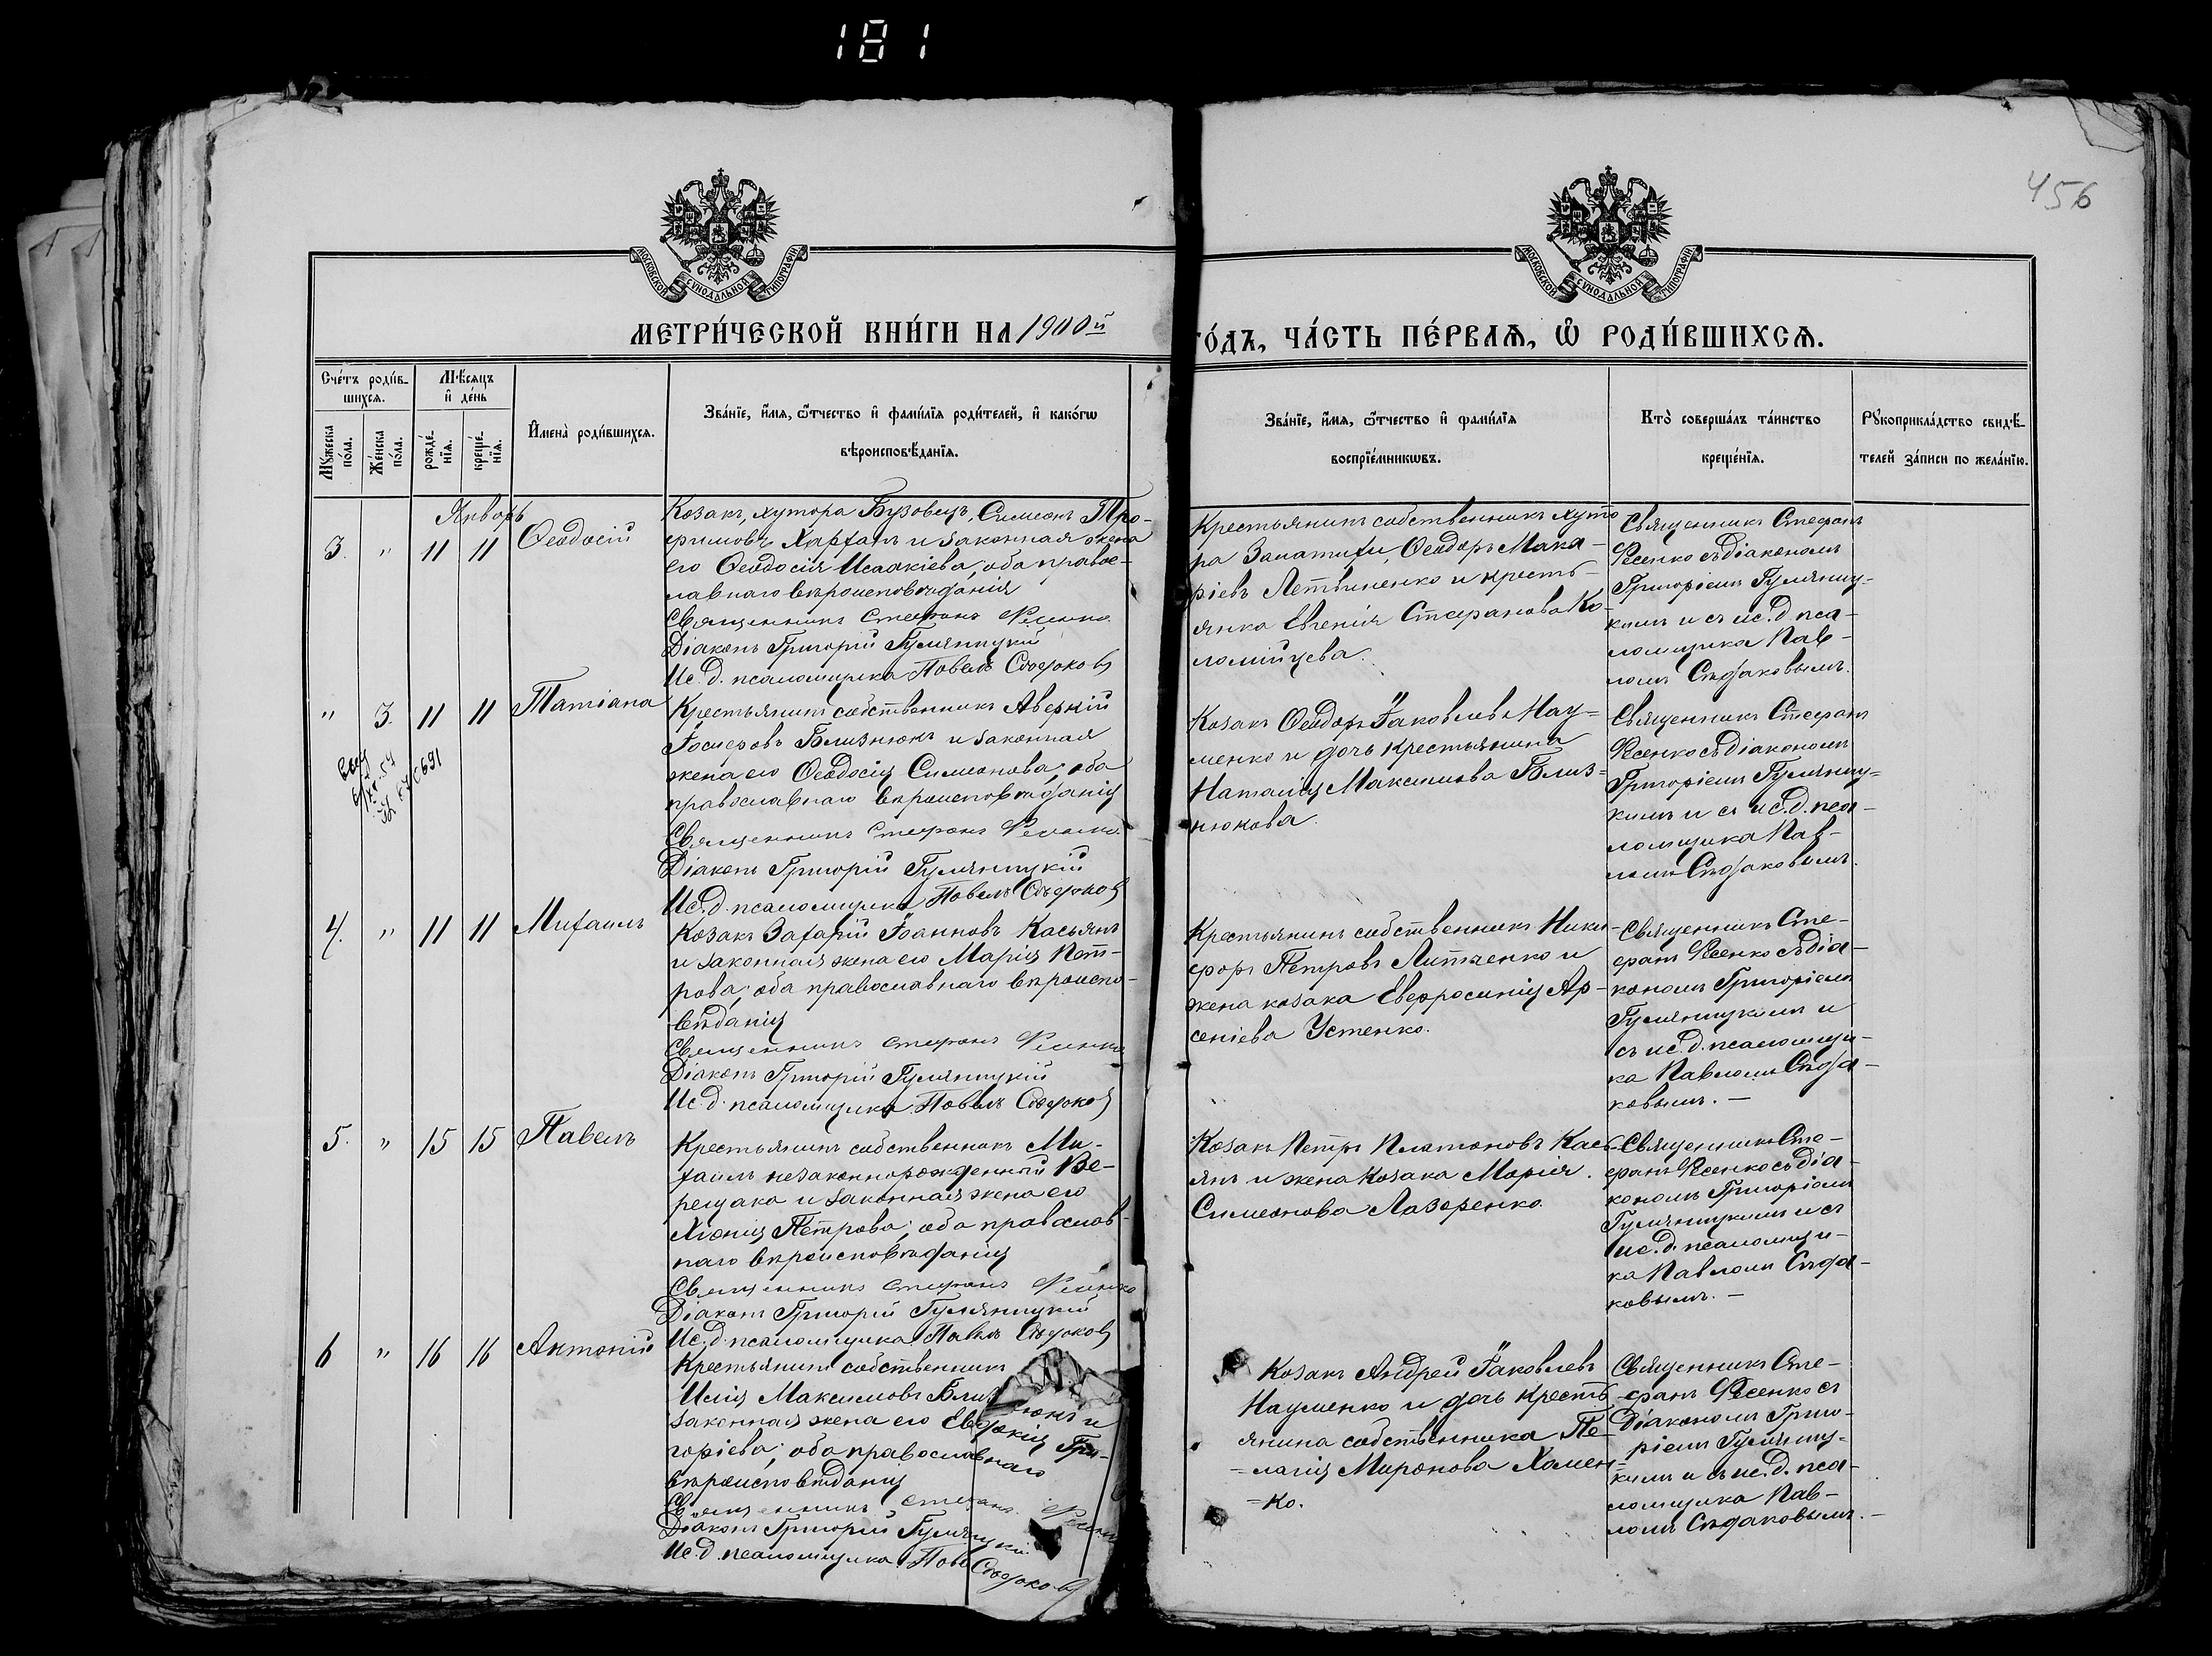 181
456
МОСКОВСКОЙ СѴНОДАЛЬНОЙ ТИПОГРАФІИ
МОСКОВСКОЙ СѴНОДАЛЬНОЙ ТИПОГРАФІИ
МЕТРИ́ЧЕСКОЙ КНИ́ГИ НА 1900й
ГО́ДЪ, ЧА́СТЬ ПЕ́РВАѦ, Ѡ҆ РОДИ́ВШИХСѦ.
Сче́тъ роди́в-
шихсѧ.
Мꙋ́жеска по́ла.
Же́нска по́ла.
Мѣ́сѧцъ
и҆ де́нь
рожде́-
нїѧ.
креще́-
нїѧ.
И҆мена̀ роди́вшихсѧ.
Зва́нїе, и҆́мѧ, ѻ҆́тчество и҆ фами́лїѧ роди́телей, и҆ како́гѡ
вѣроисповѣ́данїѧ.
Зва́нїе, и҆́мѧ, ѻ҆́тчество и҆ фами́лїѧ
воспрїе́мникѡвъ.
Кто̀ соверша́лъ та́инство
креще́нїѧ.
Рꙋкоприкла́дство свидѣ́-
телей за́писи по жела́нїю.
Январь
3. " 11 11 Ѳеодосій
Козакъ, хутора Бузовецъ, Симеонъ Тро-
фимовъ Харханъ и законная жена
его Ѳеодосія Исаакіева; оба правос-
лавнаго вѣроисповѣданія
Священникъ Стефанъ Фесенко
Діаконъ Григорій Гуляницкій
Ис. д. псаломщика Павелъ Сѣдаковъ
Крестьянинъ собственникъ хуто
ра Ѳеодоръ Мака-
ріевъ Литвиненко и кресть-
янка Евгенія Стефанова Ко-
ломійцева.
Священникъ Стефанъ
Фесенко съ діакономъ
Григоріемъ Гуляниц-
кимъ и съ ис. д. пса-
ломщика Пав-
ломъ Сѣдаковымъ.
" 3. 11 11 Татіана
Крестьянинъ собственникъ Аверкій
Близнюкъ и законная
жена его Ѳеодосія Симеонова; оба
православнаго вѣроисповѣданія
Священникъ Стефанъ Фесенко
Діаконъ Григорій Гуляницкій
Ис. д. псаломщика Павелъ Сѣдаковъ
Козакъ Ѳеодоръ Іаковлевъ Нау-
менко и дочь крестьянина
Наталія Максимова Близ-
нюкова.
Священникъ Стефанъ
Фесенко съ діакономъ
Григоріемъ Гуляниц-
кимъ и съ ис. д. пса-
ломщика Пав-
ломъ Сѣдаковымъ.
4. " 11 11 Михаилъ
Козакъ Захарій Іоанновъ Касьянъ
и законная жена его Марія Пет-
рова; оба православнаго вѣроиспо-
вѣданія
Священникъ Стефанъ Фесенко
Діаконъ Григорій Гуляницкій
Ис. д. псаломщика Павелъ Сѣдаковъ
Крестьянинъ собственникъ Ники-
форъ Петровъ Литвенко и
жена козака Евфросинія Ар-
сеніева Устенко.
Священникъ Сте-
фанъ Фесенко съ діа-
кономъ Григоріемъ
Гуляницкимъ и
съ ис. д. псаломщи-
ка Павломъ Сѣда-
ковымъ. —
5. " 15 15 Павелъ
Крестьянинъ собственникъ Ми-
хаилъ незаконнорожденный Ве-
рещака и законная жена его
Хіонія Петрова; оба православ-
наго вѣроисповѣданія
Священникъ Стефанъ Фесенко
Діаконъ Григорій Гуляницкій
Ис. д. псаломщика Павелъ Сѣдаковъ
Козакъ Петръ Платоновъ Кась-
янъ и жена козака Марія
Симеонова Лазоренко.
Священникъ Сте-
фанъ Фесенко съ діа-
кономъ Григоріемъ
Гуляницкимъ и съ
ис. д. псаломщи-
ка Павломъ Сѣда-
ковымъ. —
6 " 16 16 Антоній
Крестьянинъ собственникъ
Илія Максимовъ Близнюкъ и
законная жена его Евдокія Гри-
горіева; оба православнаго
вѣроисповѣданія
Священникъ Стефанъ Фесенко
Діаконъ Григорій Гуляницкій
Ис. д. псаломщика Пав Сѣдаковъ
Козакъ Андрей Іаковлевъ
Науменко и дочь кресть-
янина собственника Пе-
лагія Миронова Хомен-
ко.
Священникъ Сте-
фанъ Фесенко съ
діакономъ Григо-
ріемъ Гуляниц-
кимъ и съ ис. д. пса-
ломщика Пав-
ломъ Сѣдаковымъ. —